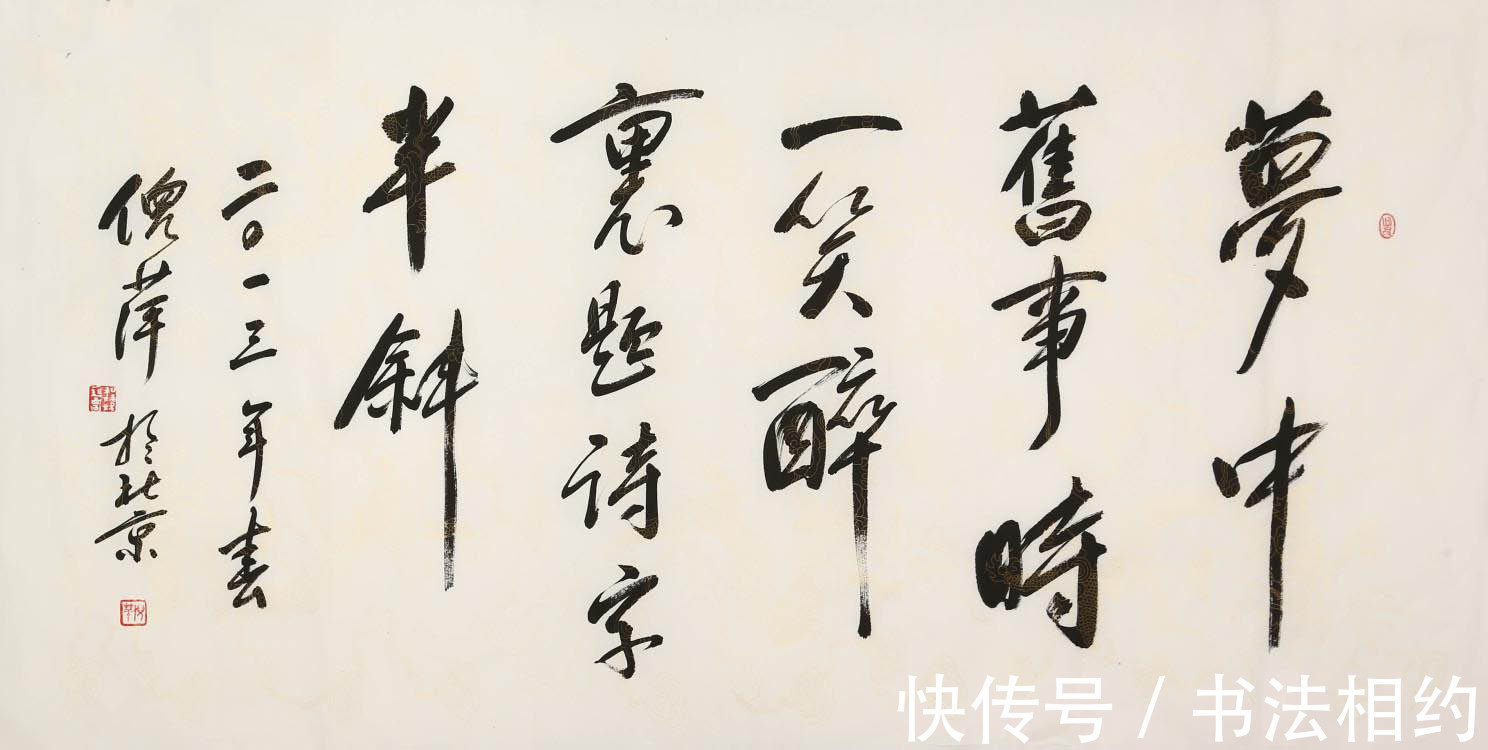 夢中
舊事時
一笑醉
裏題詩字
半斜
二〇一三年春
倪萍於北京
快传号 / 书法相约